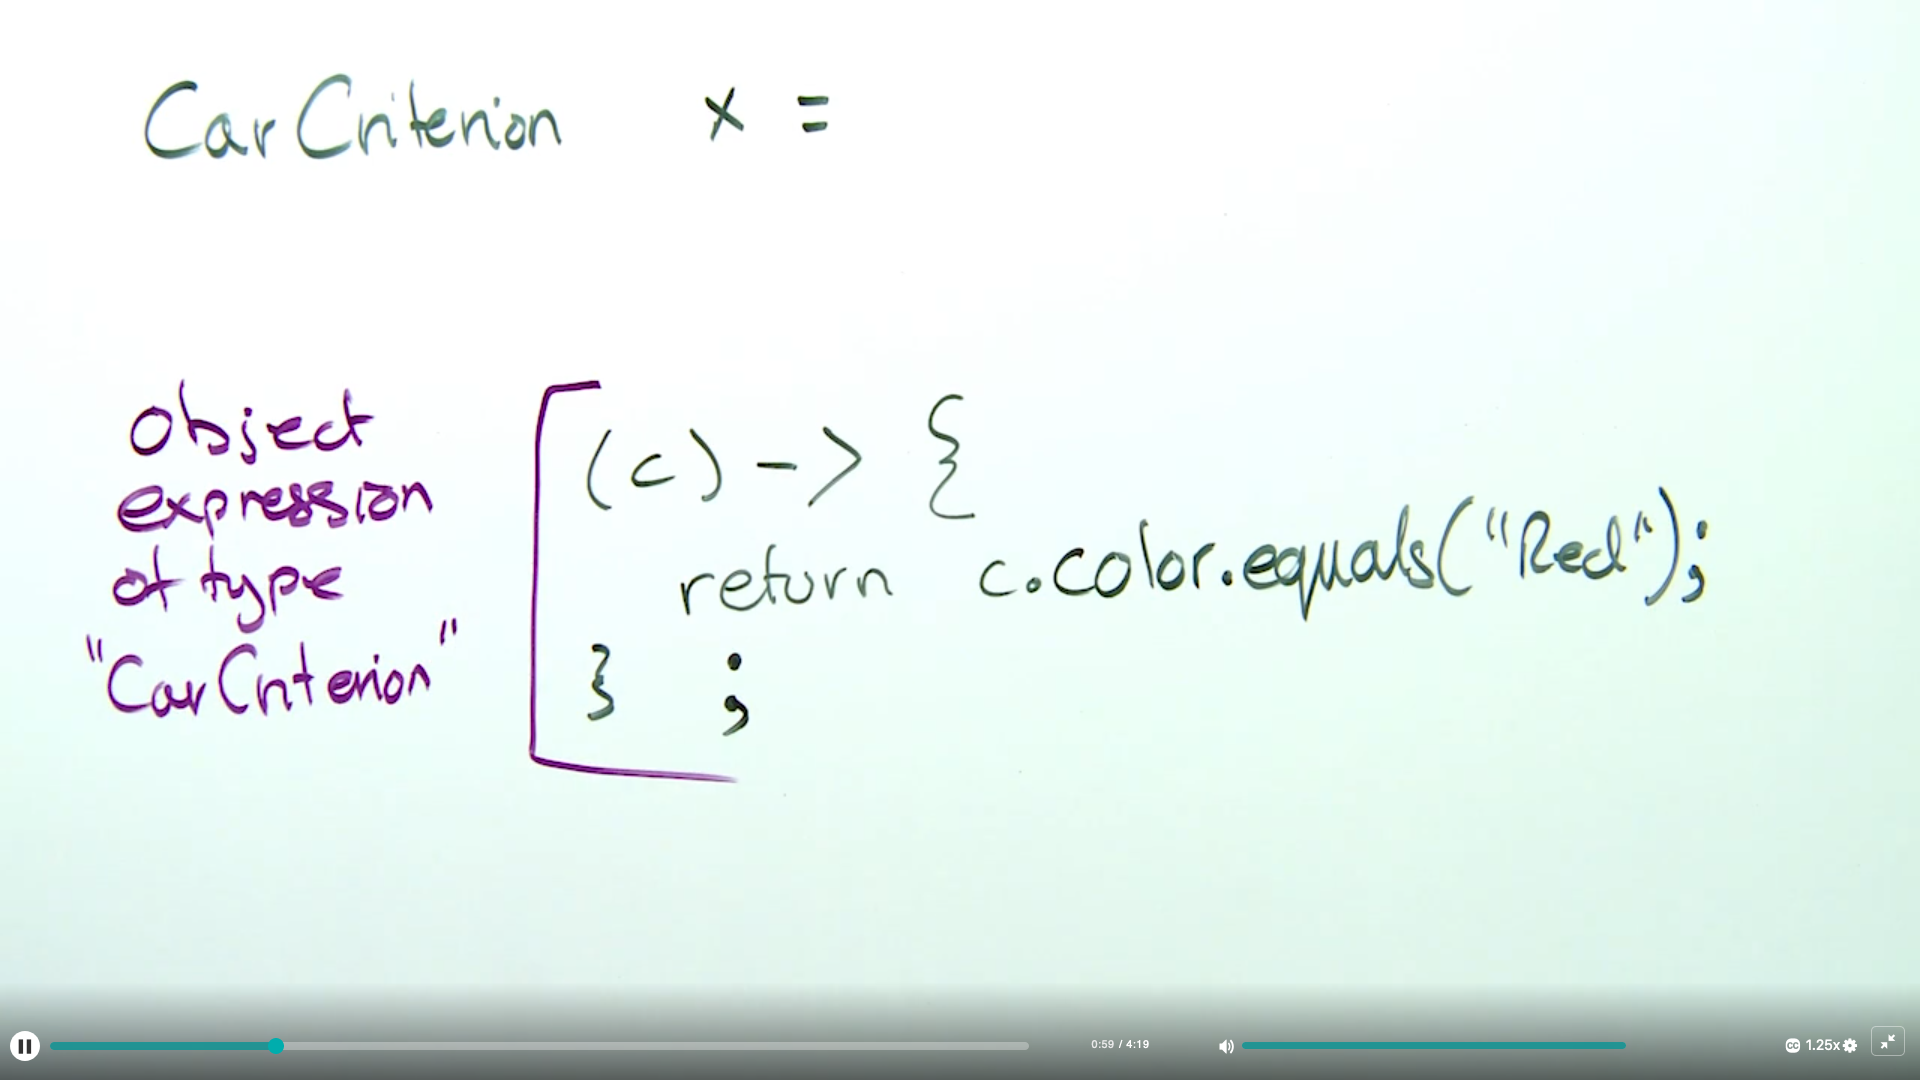 CarCriterion x =
object
expression
of type
"CarCriterion"
(c) -> {
return c.color.equals("Red");
} ;
0:59 / 4:19
CC 1.25x